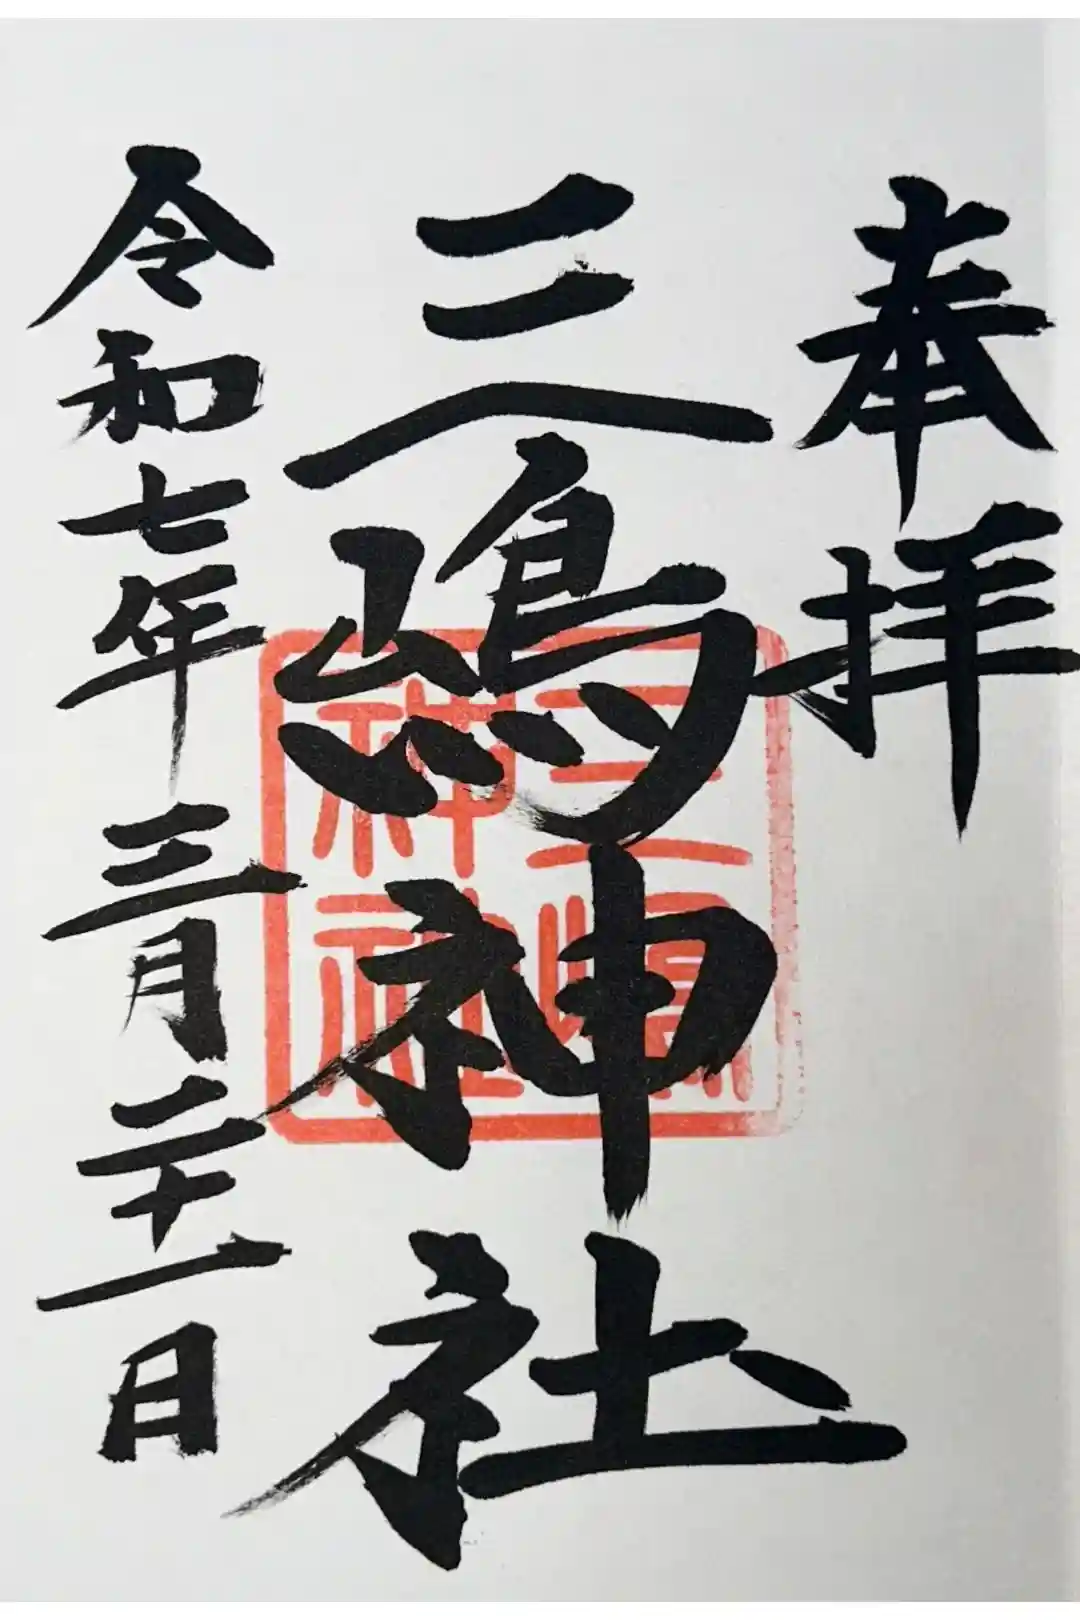 奉拝
三嶋神社
令和七年三月二十一日
三嶋
神社